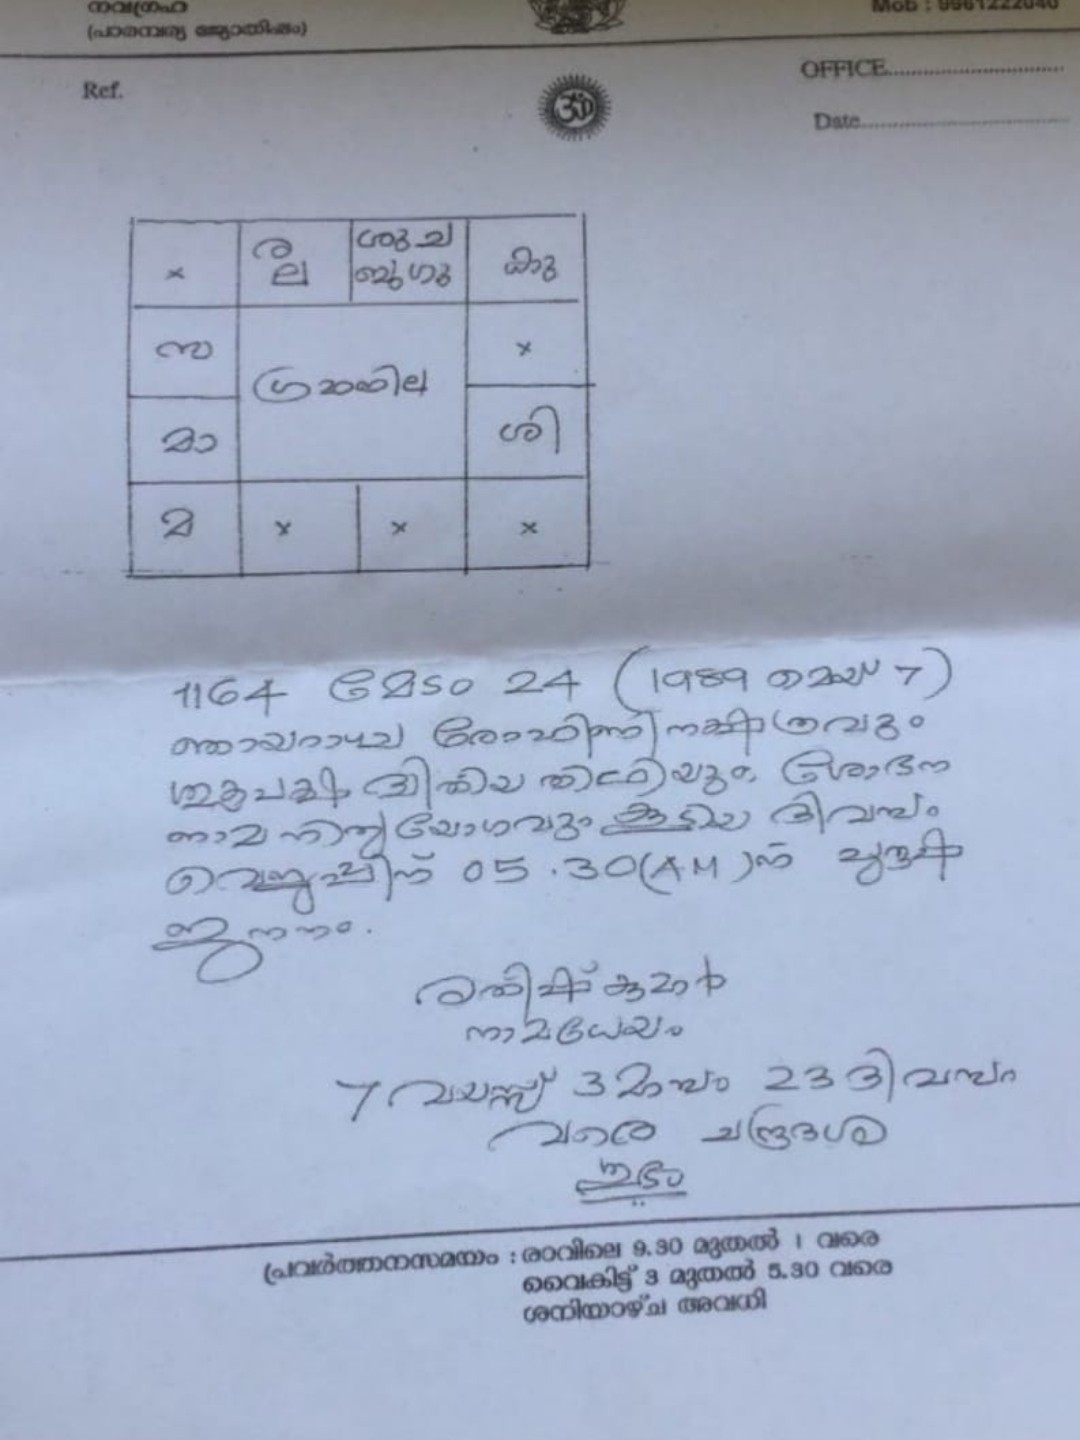 നവഗ്രഹ
(പാരമ്പര്യ ജ്യോതിഷം)
Mob : 9961222040
Ref.
OFFICE
Date
×
ര
ല
ശു ച
ബു ഗു
കു
സ
ഗ്രഹനില
×
മാ
ശി
മ
×
×
×
1164 മേടം 24 (1989 മെയ് 7)
ഞായറാഴ്ച രോഹിണി നക്ഷത്രവും
ശുക്ലപക്ഷ ദ്വിതീയ തിഥിയും, ശോഭന
നാമ നിത്യയോഗവും കൂടിയ ദിവസം
വെളുപ്പിന് 05.30(AM)ന്
ജനനം.
രതീഷ് കുമാർ
നാമധേയം
7 വയസ്സ് 3 മാസം 23 ദിവസം
വരെ ചന്ദ്രദശ
ശുഭം
പ്രവർത്തനസമയം : രാവിലെ 9.30 മുതൽ 1 വരെ
വൈകിട്ട് 3 മുതൽ 5.30 വരെ
ശനിയാഴ്ച അവധി